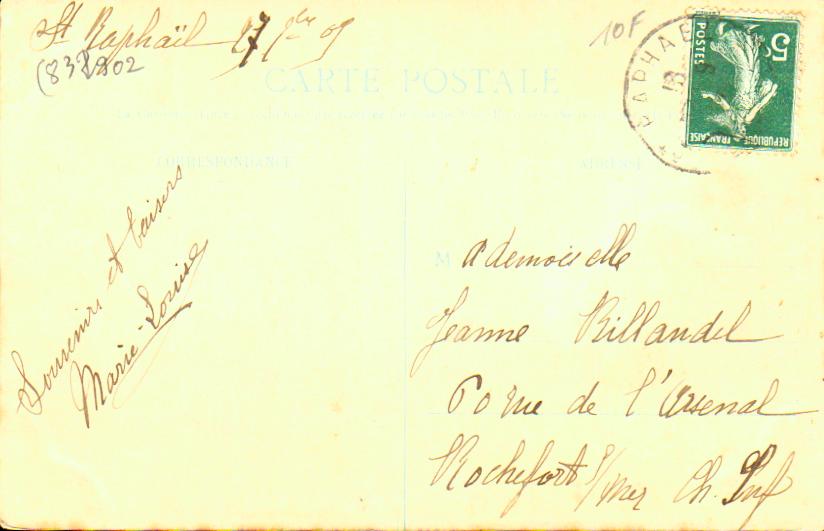 St Raphaël 27 9bre 09
(83) 202
10F
CARTE POSTALE
CORRESPONDANCE
ADRESSE
5c
POSTES
REPUBLIQUE FRANÇAISE
St RAPHAEL
Souvenirs et baisers
Marie-Louise
Mademoiselle
Jeanne
rue de l'Arsenal
Rochefort s/mer Ch. Inf